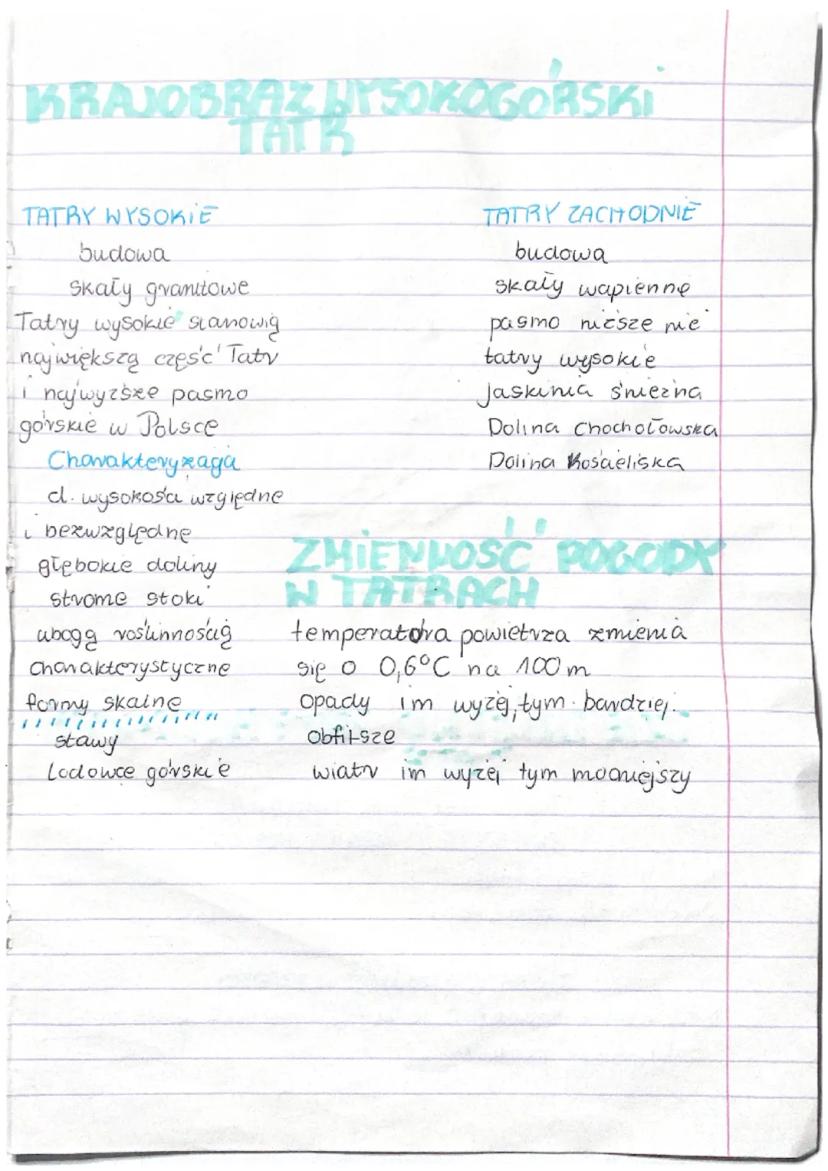 KRAJOBRAZ WYSOKOGÓRSKI
TATR
TATRY WYSOKIE
budowa
skały granitowe
Tatry wysokie stanowią
największą część Tatr
i najwyższe pasmo
górskie w Polsce
Charakteryzają
d. wysokości względne
i bezwzględne
głębokie doliny
strome stoki
ubogą roślinnością
charakterystyczne
formy skalne
stawy
Lodowce górskie
TATRY ZACHODNIE
budowa
skały wapienne
pasmo niższe nie
tatry wysokie
jaskinia śnieżna
Dolina Chochołowska
Dolina Kościeliska
ZMIENNOŚĆ POGODY
W TATRACH
temperatura powietrza zmienia
się o 0,6°C na 100 m
opady im wyżej, tym bardziej
obfitsze
wiatr im wyżej tym mocniejszy